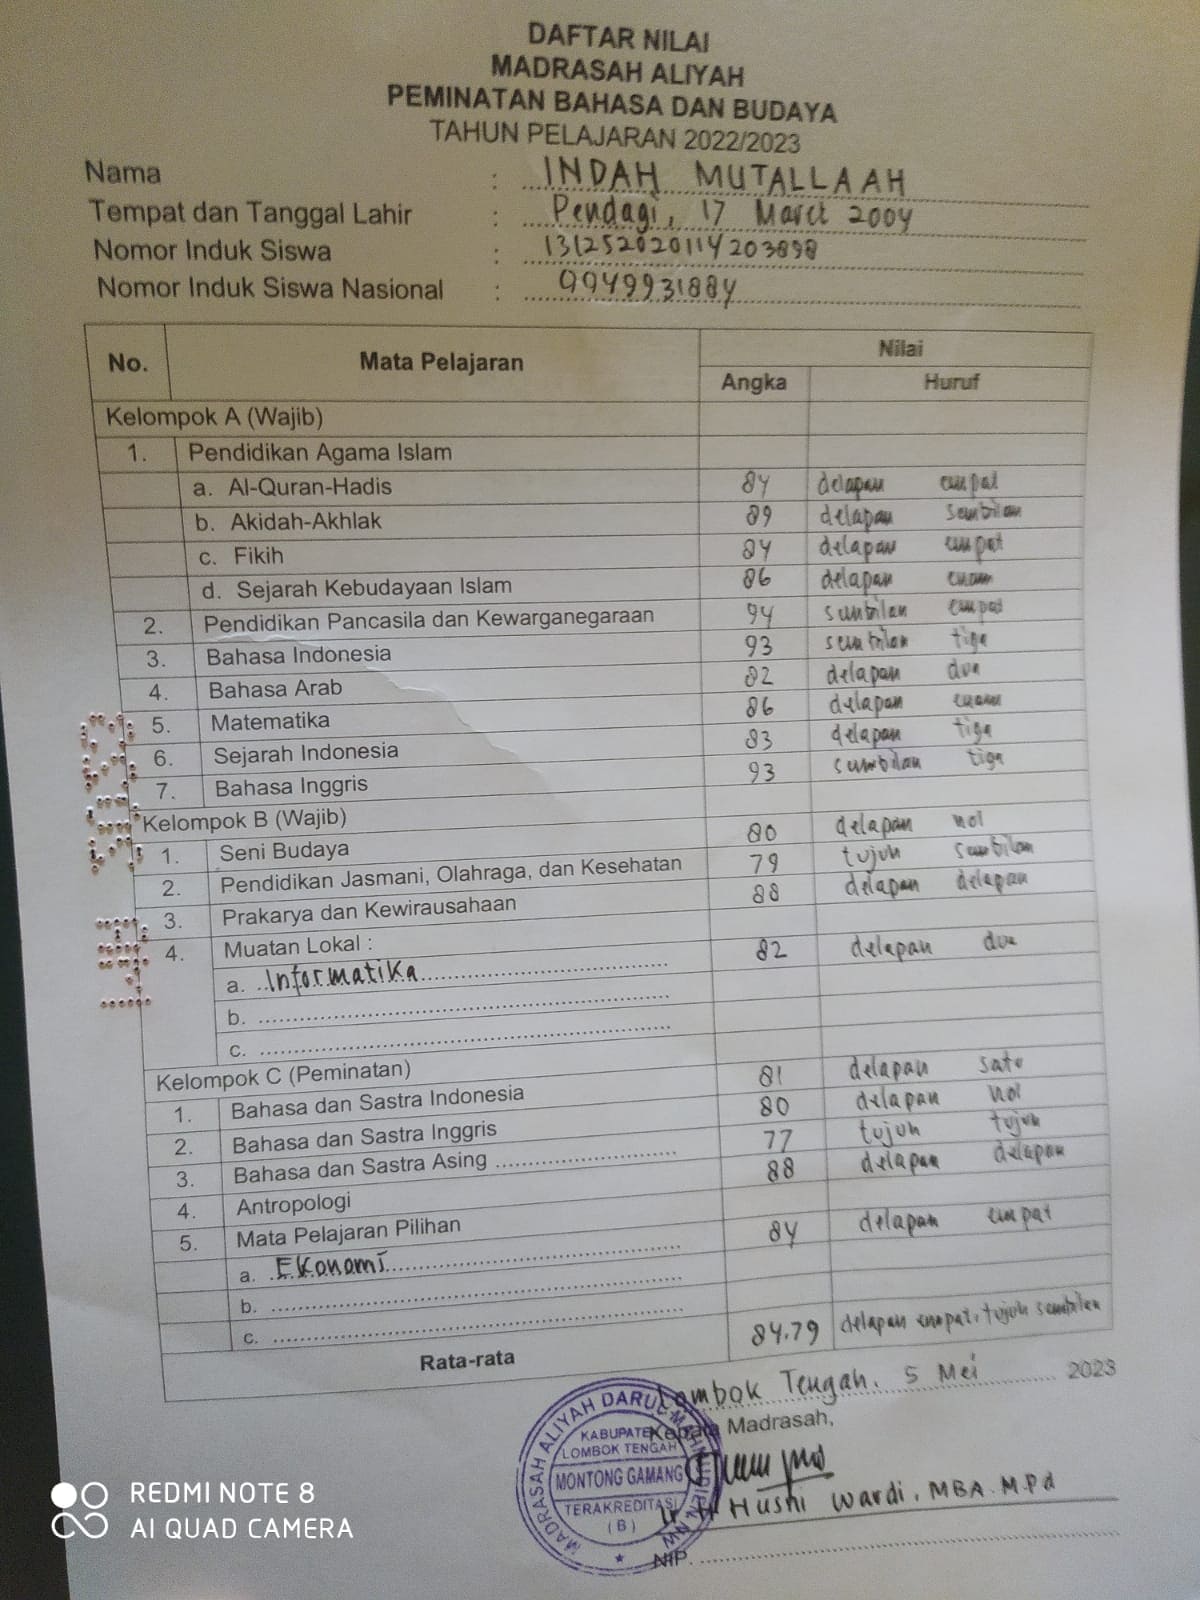 DAFTAR NILAI
MADRASAH ALIYAH
PEMINATAN BAHASA DAN BUDAYA
TAHUN PELAJARAN 2022/2023
Nama : INDAH MUTALLAAH
Tempat dan Tanggal Lahir : Pendagi, 17 Maret 2004
Nomor Induk Siswa : 131252020114203898
Nomor Induk Siswa Nasional : 9949931884
No. Mata Pelajaran Nilai
Angka Huruf
Kelompok A (Wajib)
1. Pendidikan Agama Islam
a. Al-Quran-Hadis 84 delapan empat
b. Akidah-Akhlak 89 delapan sembilan
c. Fikih 84 delapan empat
d. Sejarah Kebudayaan Islam 86 delapan enam
2. Pendidikan Pancasila dan Kewarganegaraan 94 sembilan empat
3. Bahasa Indonesia 93 sembilan tiga
4. Bahasa Arab 82 delapan dua
5. Matematika 86 delapan enam
6. Sejarah Indonesia 83 delapan tiga
7. Bahasa Inggris 93 sembilan tiga
Kelompok B (Wajib)
1. Seni Budaya 80 delapan nol
2. Pendidikan Jasmani, Olahraga, dan Kesehatan 79 tujuh sembilan
3. Prakarya dan Kewirausahaan 88 delapan delapan
4. Muatan Lokal :
a. Informatika 82 delapan dua
b.
c.
Kelompok C (Peminatan)
1. Bahasa dan Sastra Indonesia 81 delapan satu
2. Bahasa dan Sastra Inggris 80 delapan nol
3. Bahasa dan Sastra Asing 77 tujuh tujuh
4. Antropologi 88 delapan delapan
5. Mata Pelajaran Pilihan
a. Ekonomi 84 delapan empat
b.
c.
Rata-rata 84,79 delapan empat, tujuh sembilan
Lombok Tengah, 5 Mei 2023
Kepala Madrasah,
MADRASAH ALIYAH DARUL MAHMUDIEN NW
KABUPATEN
LOMBOK TENGAH
MONTONG GAMANG
TERAKREDITASI
(B)
Husni Wardi, MBA. M.Pd
NIP.
REDMI NOTE 8
AI QUAD CAMERA